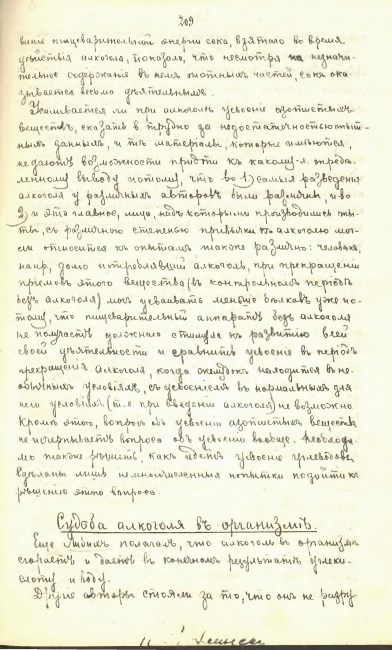 209
вание пищеварительной энергии сока, взятаго во время
действия алкоголя, показало, что несмотря на незначи-
тельное содержание в нем плотных частей, сок ока
зывается весьма деятельным.
Усиливается ли при алкоголе усвоение азотистых
веществ, сказать трудно за недостаточностью опыт-
ных данных, и те материалы, которые имеются,
не дают возможности придти к какому-л. опреде-
ленному выводу потому, что во 1) самыя разведения
алкоголя у различных авторов были различны, и во
2) и это главное, лица, над которыми производились опы-
ты, с различного степенью привычки к алкоголю мог-
ли относится к опытам также различно: человек,
напр, долго употреблявший алкоголь, при прекращении
приемов этого вещества (в контрольном периоде
без алкоголя) мог усваивать меньше белков уже по-
тому, что пищеварительный аппарат без алкоголя
не получает должнаго стимула к развитию всей
своей деятельности и сравнить усвоение в период
прекращения алкоголя, когда желудок находится в не-
обычных условиях, с усвоением в нормальных для
него условиях (т.е. при введении алкоголя) не возможно.
Кроме этого, вопрос об усвоении азотистых веществ
не исчерпывает вопроса об усвоении вообще. Необходи-
мо также решить, как идет усвоение углеводов.
Сделаны лишь немногочисленныя попытки подойти к
решению этого вопроса
Судьба алкоголя въ организмѣ.
Еще Либих полагал, что алкоголь в организме
сгорает и дает в конечном результате углеки-
слоту и воду.
Другие авторы стояли за то, что он не разру